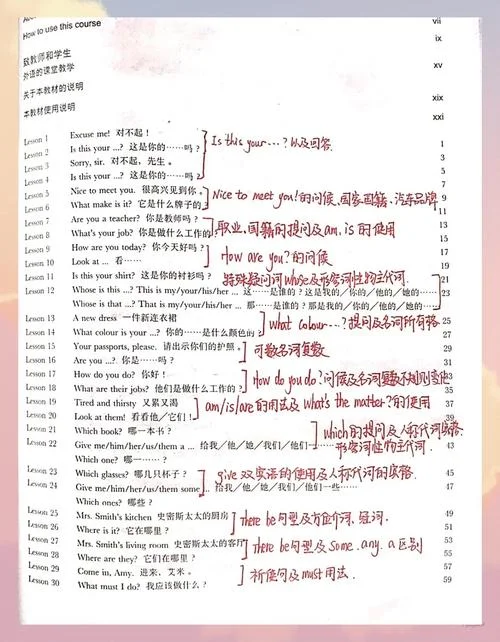 How to use this course vii
ix
致教师和学生
外语的课堂教学 xv
关于本教材的说明
本教材使用说明 xix
xxi
Lesson 1 Excuse me! 对不起！ 1
Lesson 2 Is this your ...? 这是你的……吗？
Lesson 3 Sorry, sir. 对不起，先生。
Lesson 4 Is this your ...? 这是你的……吗？
Is this your ...? 以及回答
Lesson 5 Nice to meet you. 很高兴见到你。
Lesson 6 What make is it? 它是什么牌子的
Nice to meet you! 的问候、国家国籍、汽车品牌
Lesson 7 Are you a teacher? 你是教师吗？
Lesson 8 What's your job? 你是做什么工作的
职业、国籍的提问及am, is 的使用
Lesson 9 How are you today? 你今天好吗？
Lesson 10 Look at ... 看……
How are you? 的问候
Lesson 11 Is this your shirt? 这是你的衬衫吗？ 21
Lesson 12 Whose is this ...? This is my/your/his/her ... 这……是谁的？这是我的／你的／他的／她的…… 23
Whose is that ...? That is my/your/his/her ... 那……是谁的？那是我的／你的／他的／她的……
特殊疑问词whose及形容词性物主代词
Lesson 13 A new dress 一件新连衣裙 25
Lesson 14 What colour is your ...? 你的……是什么颜色的 27
What colour...? 提问及名词所有格
Lesson 15 Your passports, please. 请出示你们的护照。 29
Lesson 16 Are you ...? 你是……吗？ 31
可数名词复数
Lesson 17 How do you do? 你好！
Lesson 18 What are their jobs? 他们是做什么工作的？ 35
How do you do? 问候及名词复数不规则变化
Lesson 19 Tired and thirsty 又累又渴 37
Lesson 20 Look at them! 看看他／它们！
am/is/are的用法及 What's the matter? 的使用
Lesson 21 Which book? 哪一本书？
Lesson 22 Give me/him/her/us/them a ... 给我／他／她／我们／他们一 43
Which one? 哪一……？
which的提问及人称代词宾格
形容词性物主代词.
Lesson 23 Which glasses? 哪几只杯子？ 45
Lesson 24 Give me/him/her/us/them some ... 给我／他／她／我们／他们一些…… 47
Which ones? 哪些？
give 双宾语的使用及人称代词的宾格
Lesson 25 Mrs. Smith's kitchen 史密斯太太的厨房 49
Lesson 26 Where is it? 它在哪里？ 51
there be句型及方位介词、冠词.
Lesson 27 Mrs. Smith's living room 史密斯太太的客厅 53
Lesson 28 Where are they? 它们在哪里？ 55
there be句型及 some. any. a 区别
Lesson 29 Come in, Amy. 进来，艾米。 57
Lesson 30 What must I do? 我应该做什么？ 59
祈使句及must用法.